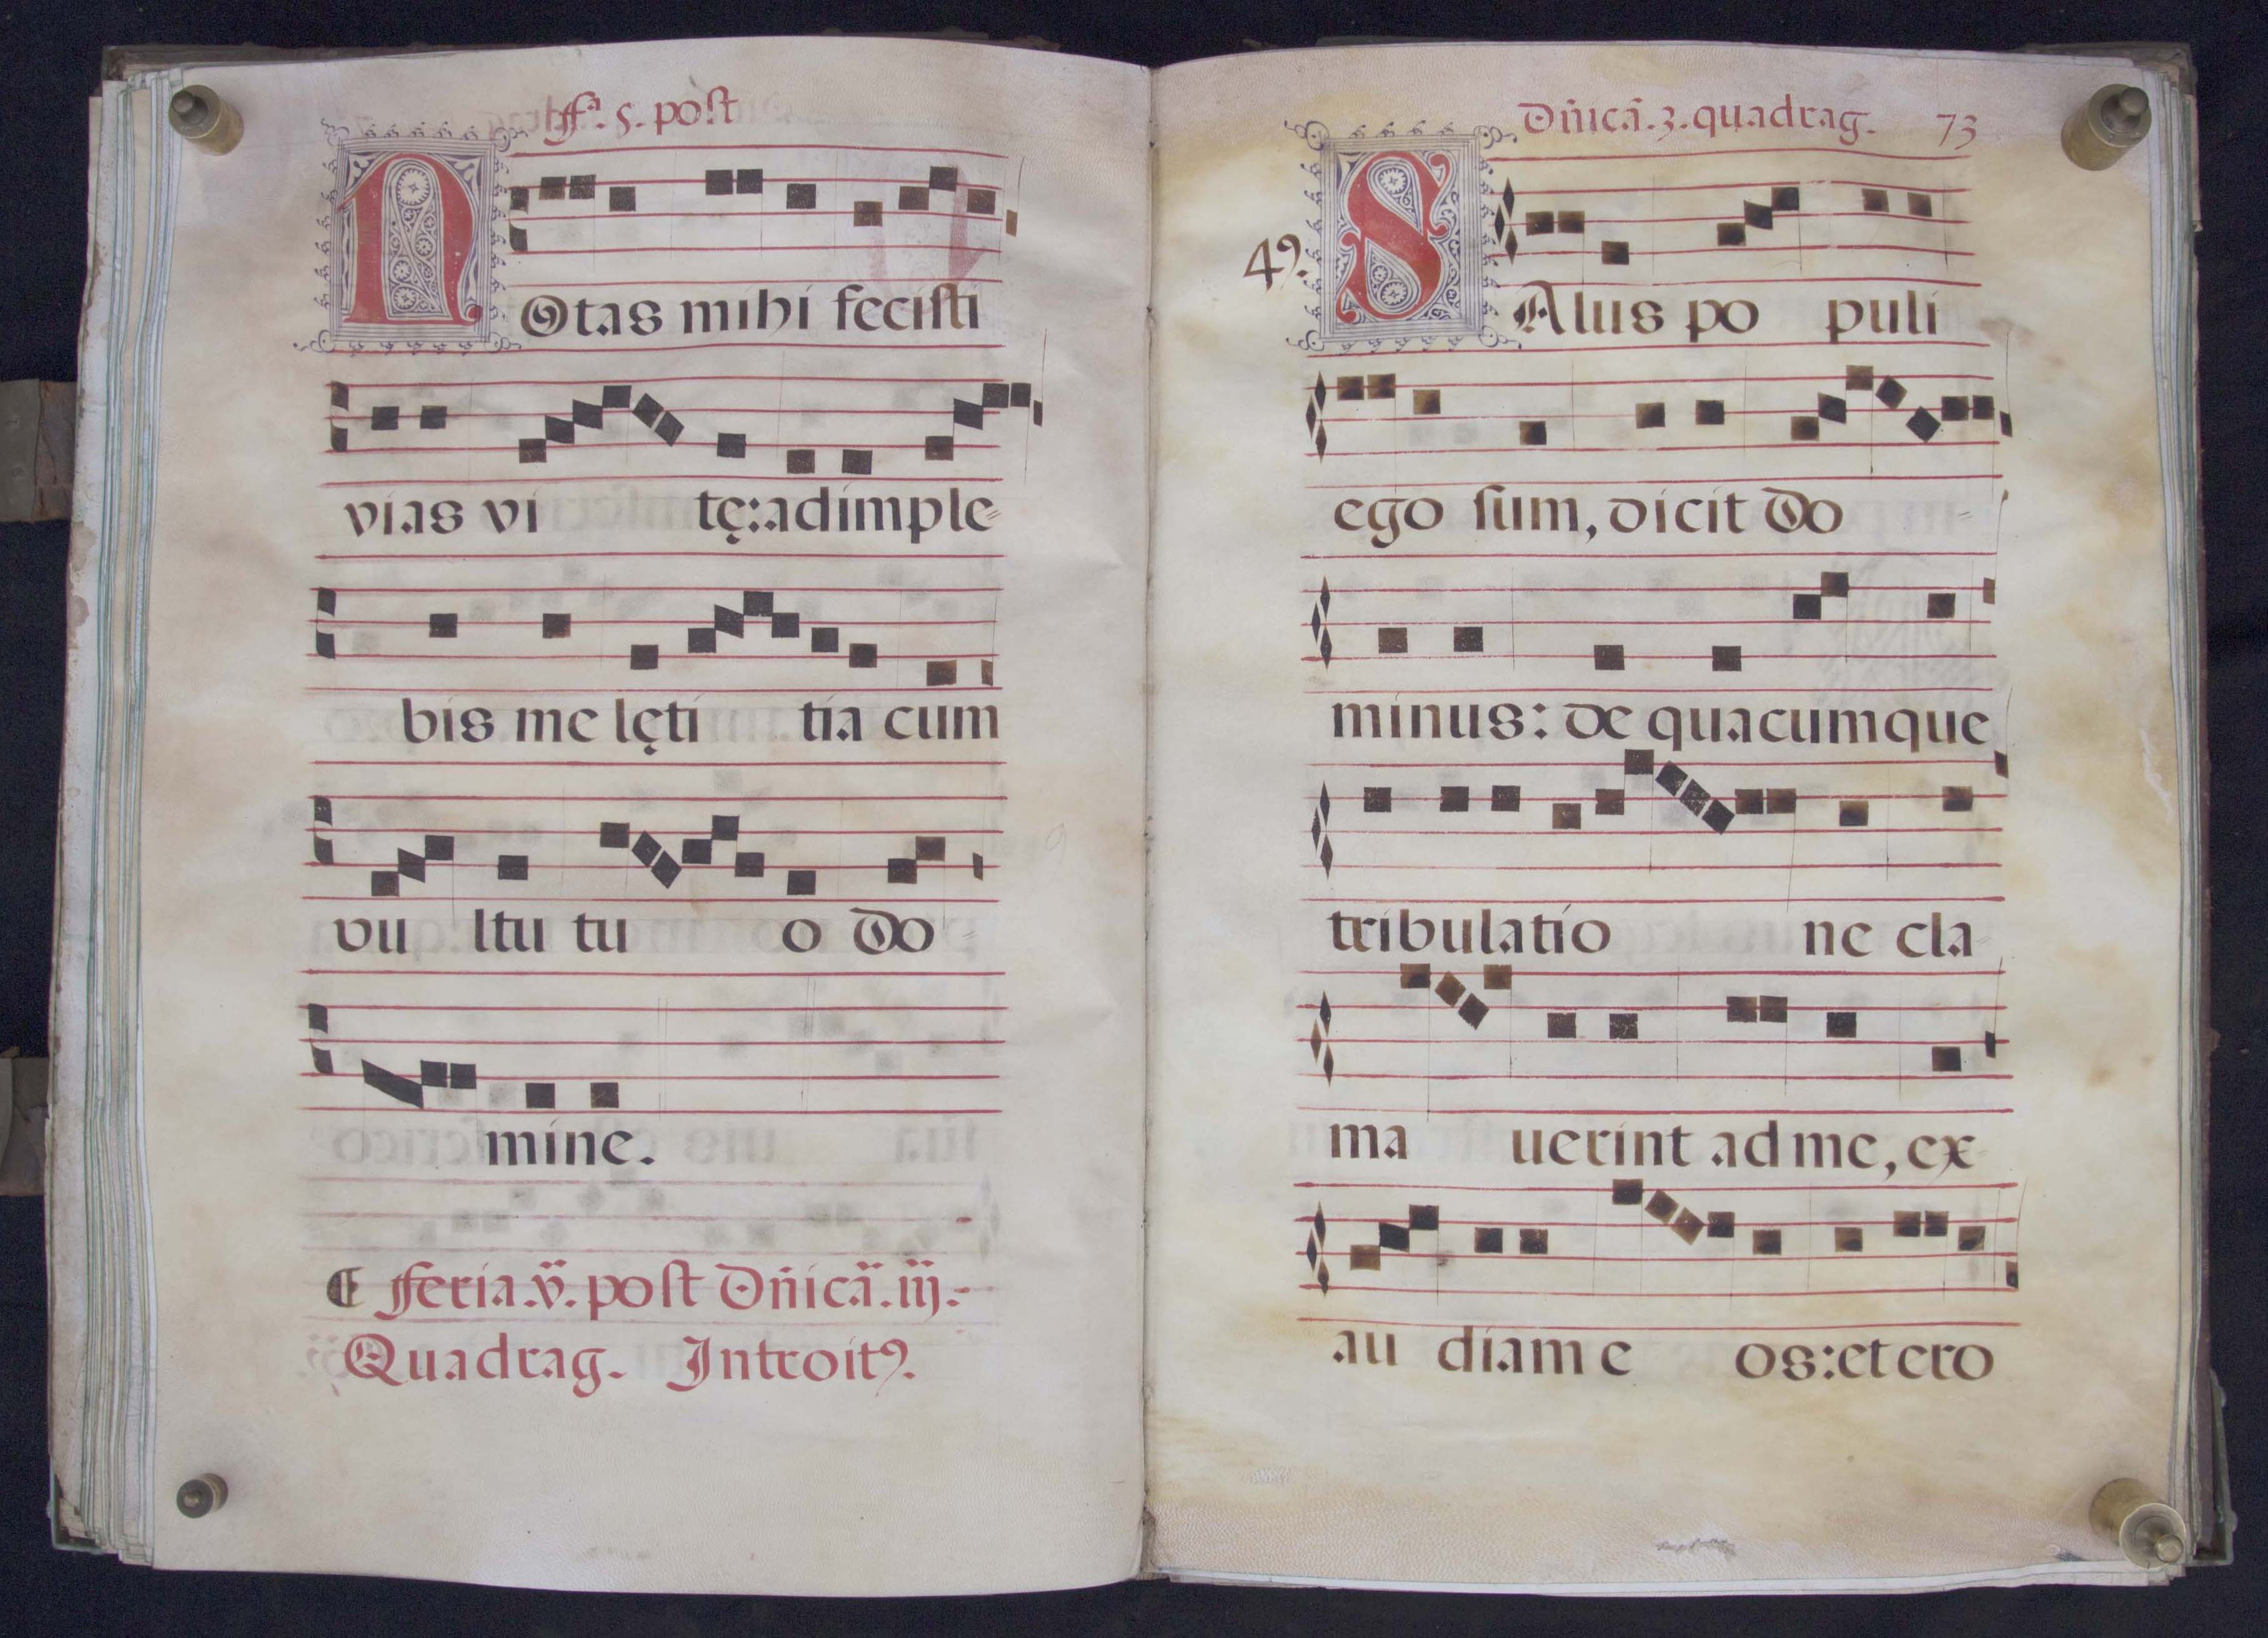 ffa. 5. post
NOtas mihi fecisti
vias vi tę: adimple=
bis me lęti tia cum
vu ltu tu o Do=
mine.
¶ fferia. v̈. post Dn̄icā. iij.
Quadrag. Introitꝰ.
Dn̄icā. 3. quadrag. 73
49.
SAlus po puli
ego sum, dicit Do=
minus: de quacumque
tribulatio ne cla=
ma uerint ad me, ex=
au diam e os: et ero